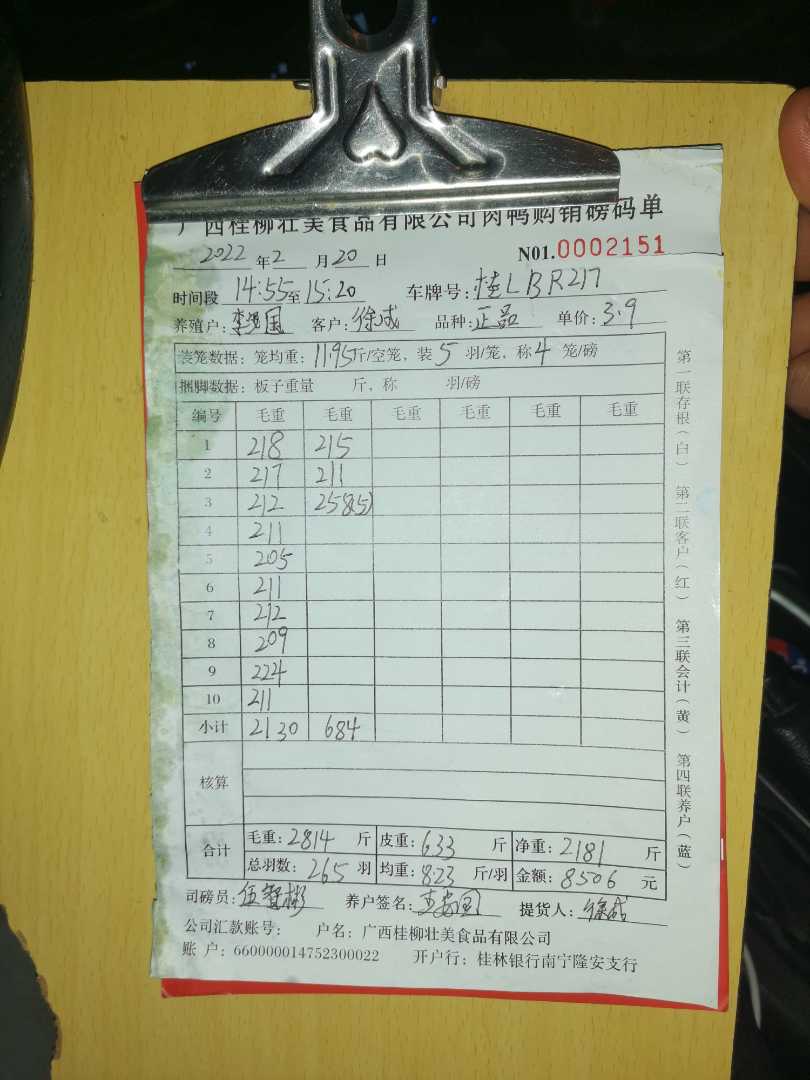 广西桂柳壮美食品有限公司肉鸭购销磅码单
2022 年 2 月 20 日 N01.0002151
时间段 14:55 至 15:20 车牌号: 桂LBR217
养殖户: 国 客户: 徐成 品种: 正品 单价: 3.9
装笼数据: 笼均重: 11.95 斤/空笼, 装 5 羽/笼, 称 4 笼/磅
捆脚数据: 板子重量 斤, 称 羽/磅
编号 毛重 毛重 毛重 毛重 毛重 毛重
1 218 215
2 217 211
3 212 258(5)
4 211
5 205
6 211
7 212
8 209
9 224
10 211
小计 2130 684
核算
合计 毛重: 2814 斤 皮重: 633 斤 净重: 2181 斤
总羽数: 265 羽 均重: 823 斤/羽 金额: 8506 元
司磅员: 伍智彬 养户签名: 国 提货人: 徐成
公司汇款账号: 户名: 广西桂柳壮美食品有限公司
账 户: 660000014752300022 开户行: 桂林银行南宁隆安支行
第一联存根(白) 第二联客户(红) 第三联会计(黄) 第四联养户(蓝)